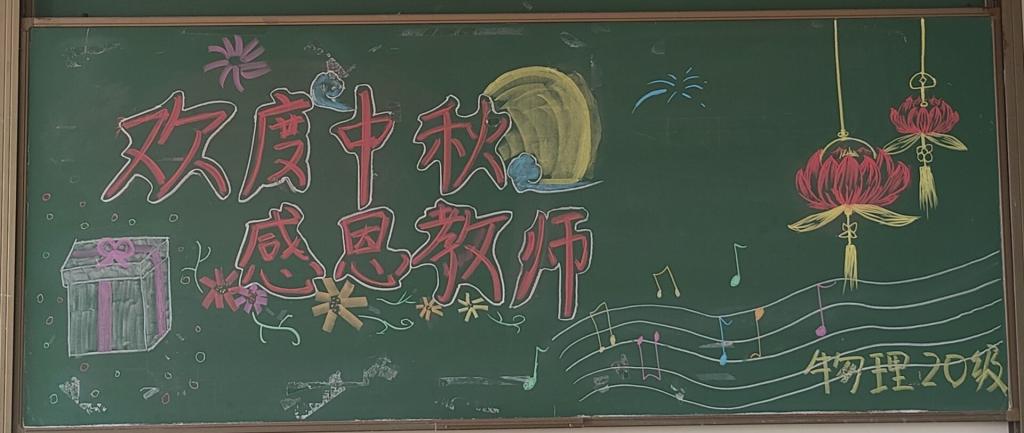 欢度中秋
感恩教师
物理20级